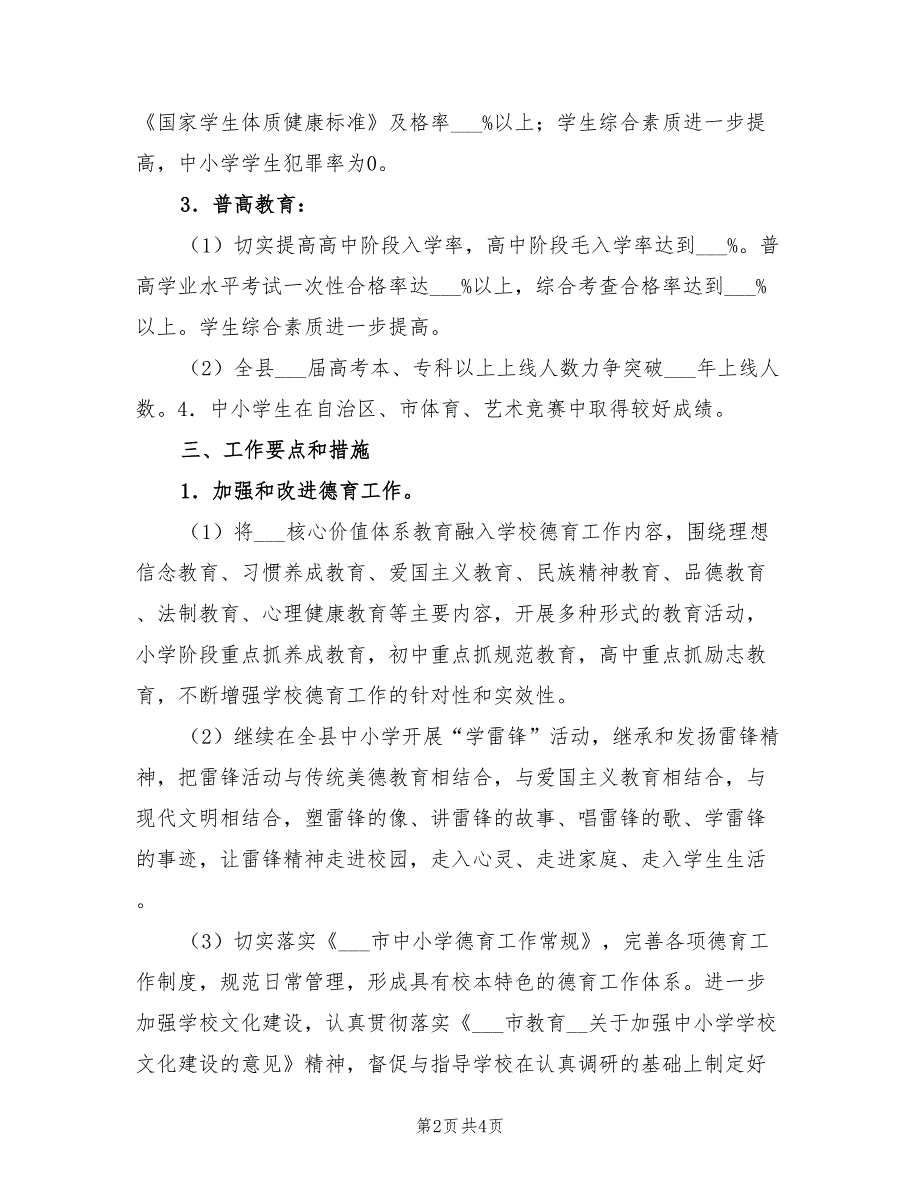 《国家学生体质健康标准》及格率___%以上；学生综合素质进一步提
高，中小学学生犯罪率为0。
3．普高教育：
（1）切实提高高中阶段入学率，高中阶段毛入学率达到___%。普
高学业水平考试一次性合格率达___%以上，综合考查合格率达到___%
以上。学生综合素质进一步提高。
（2）全县___届高考本、专科以上上线人数力争突破___年上线人
数。4．中小学生在自治区、市体育、艺术竞赛中取得较好成绩。
三、工作要点和措施
1．加强和改进德育工作。
（1）将___核心价值体系教育融入学校德育工作内容，围绕理想
信念教育、习惯养成教育、爱国主义教育、民族精神教育、品德教育
、法制教育、心理健康教育等主要内容，开展多种形式的教育活动，
小学阶段重点抓养成教育，初中重点抓规范教育，高中重点抓励志教
育，不断增强学校德育工作的针对性和实效性。
（2）继续在全县中小学开展“学雷锋”活动，继承和发扬雷锋精
神，把雷锋活动与传统美德教育相结合，与爱国主义教育相结合，与
现代文明相结合，塑雷锋的像、讲雷锋的故事、唱雷锋的歌、学雷锋
的事迹，让雷锋精神走进校园，走入心灵、走进家庭、走入学生生活
。
（3）切实落实《___市中小学德育工作常规》，完善各项德育工
作制度，规范日常管理，形成具有校本特色的德育工作体系。进一步
加强学校文化建设，认真贯彻落实《___市教育__关于加强中小学学校
文化建设的意见》精神，督促与指导学校在认真调研的基础上制定好
第2页共4页